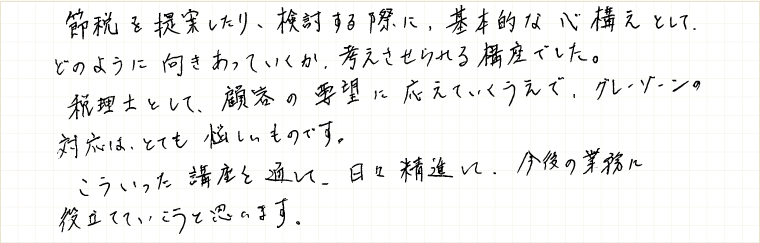 節税を提案したり、検討する際に、基本的な心構えとして、
どのように向きあっていくか、考えさせられる講座でした。
税理士として、顧客の要望に応えていくうえで、グレーゾーンの
対応は、とても悩しいものです。
こういった講座を通して、日々精進して、今後の業務に
役立てていこうと思います。